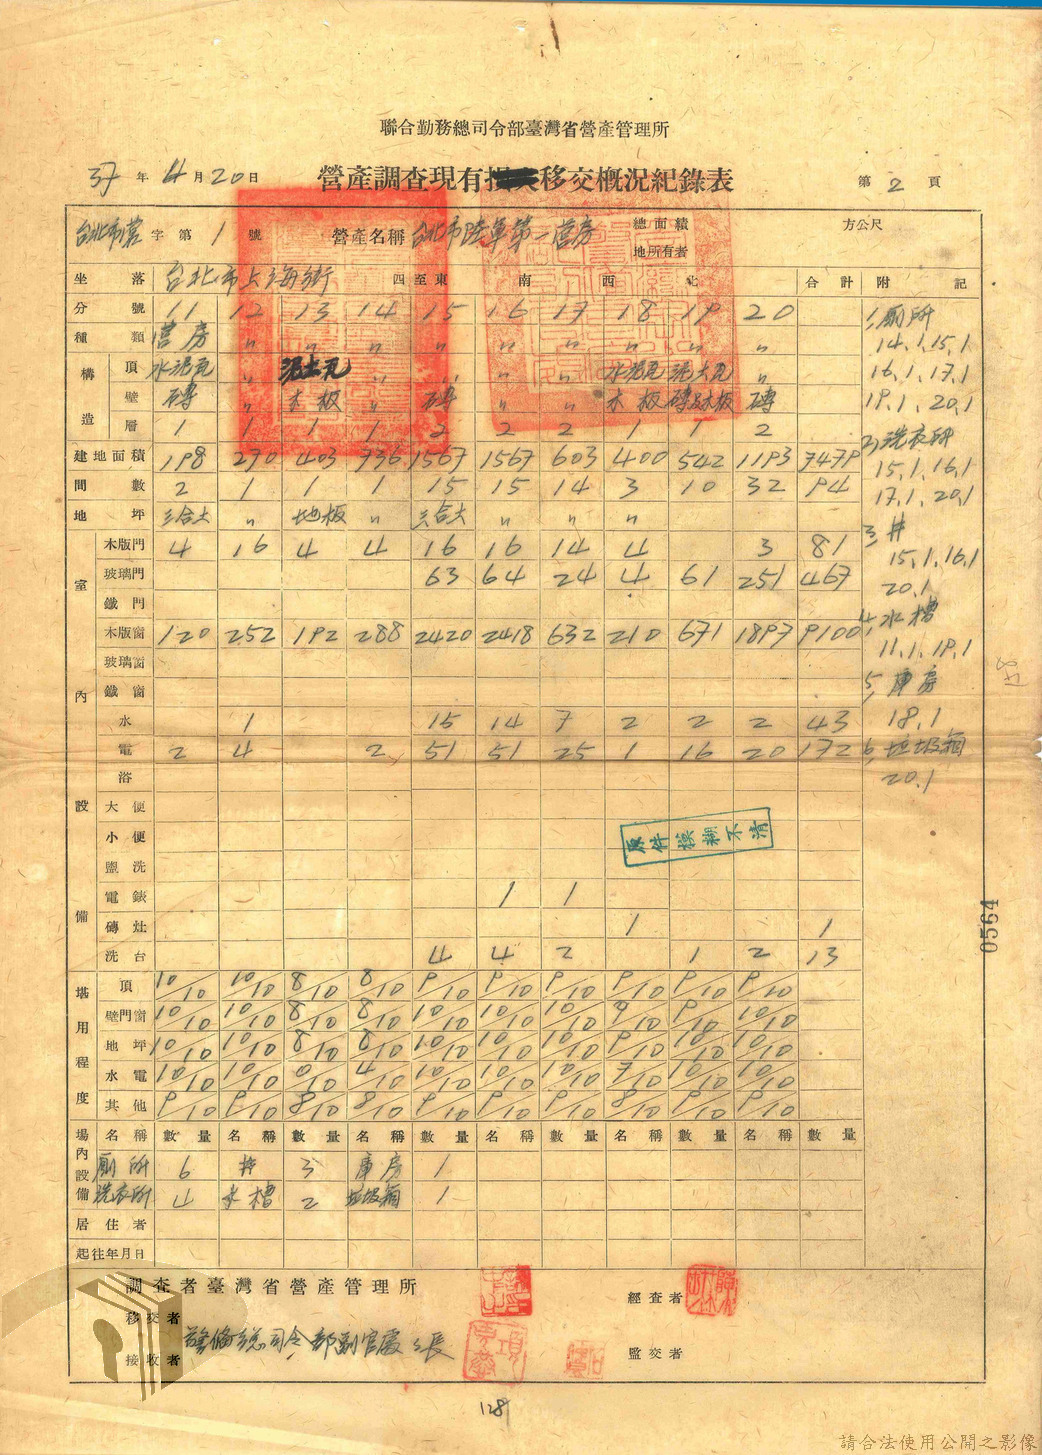 聯合勤務總司令部臺灣省營產管理所
37年4月20日 營產調查現有移交概況紀錄表 第2頁
台北市营字第1號 營產名稱 台北市陸軍第一营房 總面積 方公尺
地所有者
坐落 台北市上海街 四至東 南 西 北 合計 附記
分號 11 12 13 14 15 16 17 18 19 20
種類 营房 〃 〃 〃 〃 〃 〃 〃 〃 〃
構造 頂 水泥瓦 〃 泥土瓦 〃 〃 〃 〃 水泥瓦 泥土瓦 〃
壁 磚 〃 木板 〃 磚 〃 〃 木板 磚及木板 磚
層 1 1 1 1 2 2 2 1 1 2
建地面積 198 270 403 736 1567 1567 603 400 542 1193 7479
間數 2 1 1 1 15 15 14 3 10 32 94
地坪 三合土 〃 地板 〃 三合土 〃 〃 〃
室內設備
木版門 4 16 4 4 16 16 14 4 3 81
玻璃門 63 64 24 4 61 251 467
鐵門
木版窗 120 252 192 288 2420 2418 632 210 671 1897 9100
玻璃窗
鐵窗
水 1 15 14 7 2 2 2 43
電 2 4 2 51 51 25 1 16 20 172
浴
大便
小便
盥洗
電錶 1 1
磚灶 1 1
洗台 4 4 2 1 2 13
堪用程度
頂 10/10 10/10 8/10 8/10 9/10 9/10 9/10 9/10 9/10 9/10
壁門窗 10/10 10/10 8/10 8/10 10/10 10/10 10/10 9/10 9/10 10/10
地坪 10/10 10/10 8/10 8/10 10/10 10/10 10/10 9/10 10/10 10/10
水電 10/10 10/10 0/10 4/10 10/10 10/10 10/10 7/10 10/10 10/10
其他 9/10 9/10 8/10 8/10 9/10 9/10 9/10 8/10 9/10 9/10
1,厠所
14.1,15.1
16.1,17.1
19.1,20.1
2,洗衣所
15.1,16.1
17.1,20.1
3,井
15.1,16.1
20.1
4,水槽
11.1,19.1
5,庫房
18.1
6,垃圾箱
20.1
原件模糊不清
0564
場內設備 名稱 數量 名稱 數量 名稱 數量 名稱 數量 名稱 數量
厠所 6 井 3 庫房 1
洗衣所 4 水槽 2 垃圾箱 1
居住者
起往年月日
調查者臺灣省營產管理所 經查者
移交者
警備總司令部副官處處長
接收者 監交者
128
請合法使用公開之影像